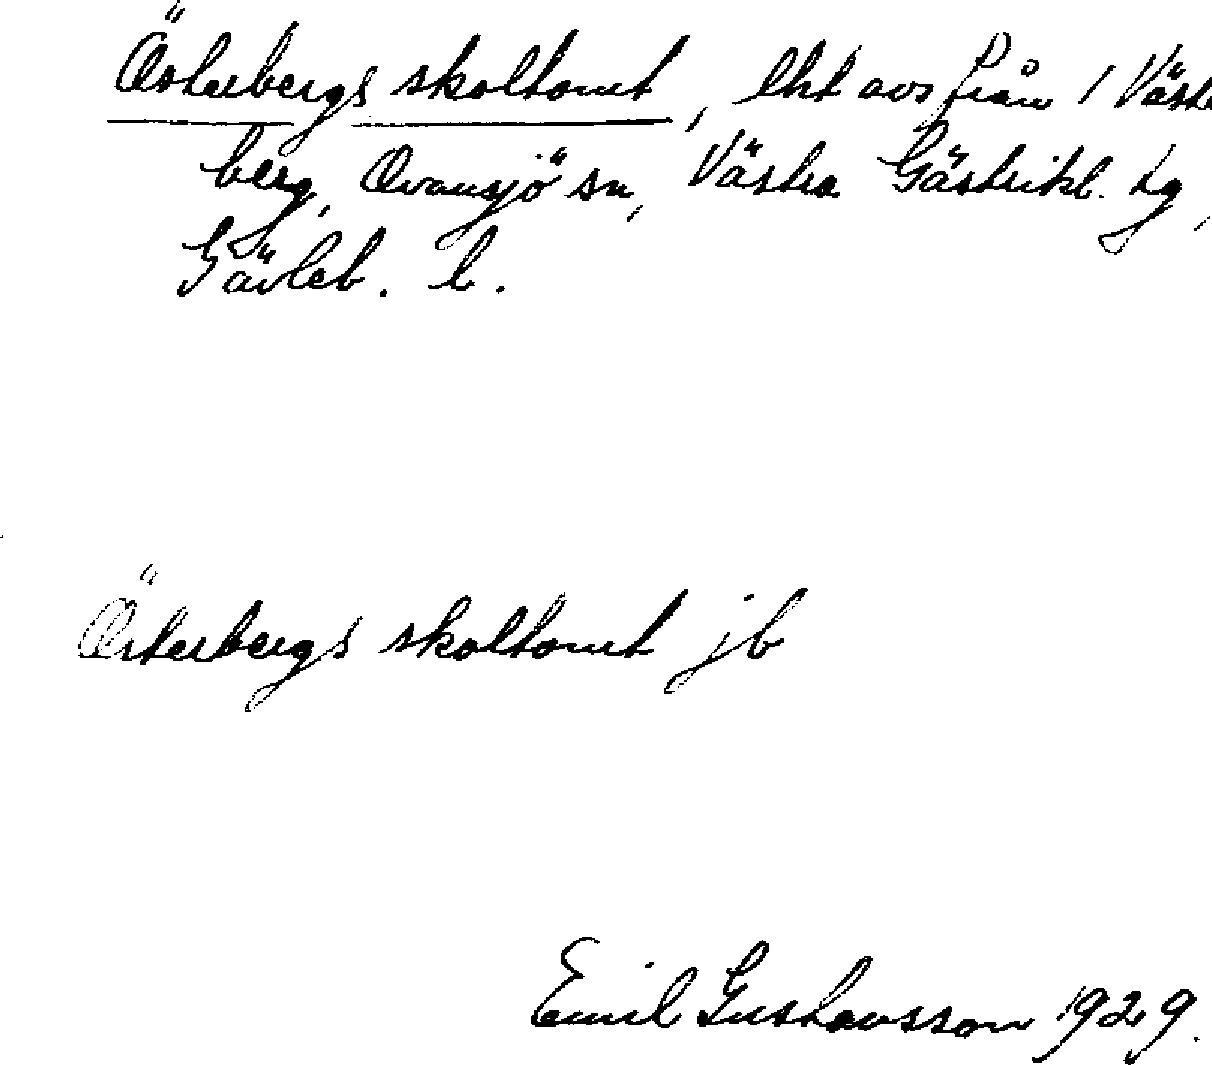 Österbergs skoltomt, lht avs från 1 Väster
berg, Ovansjö sn, Västra Gästrikl. tg,
Gävleb. l.
Österbergs skoltomt jb
Emil Gustavsson 1929.